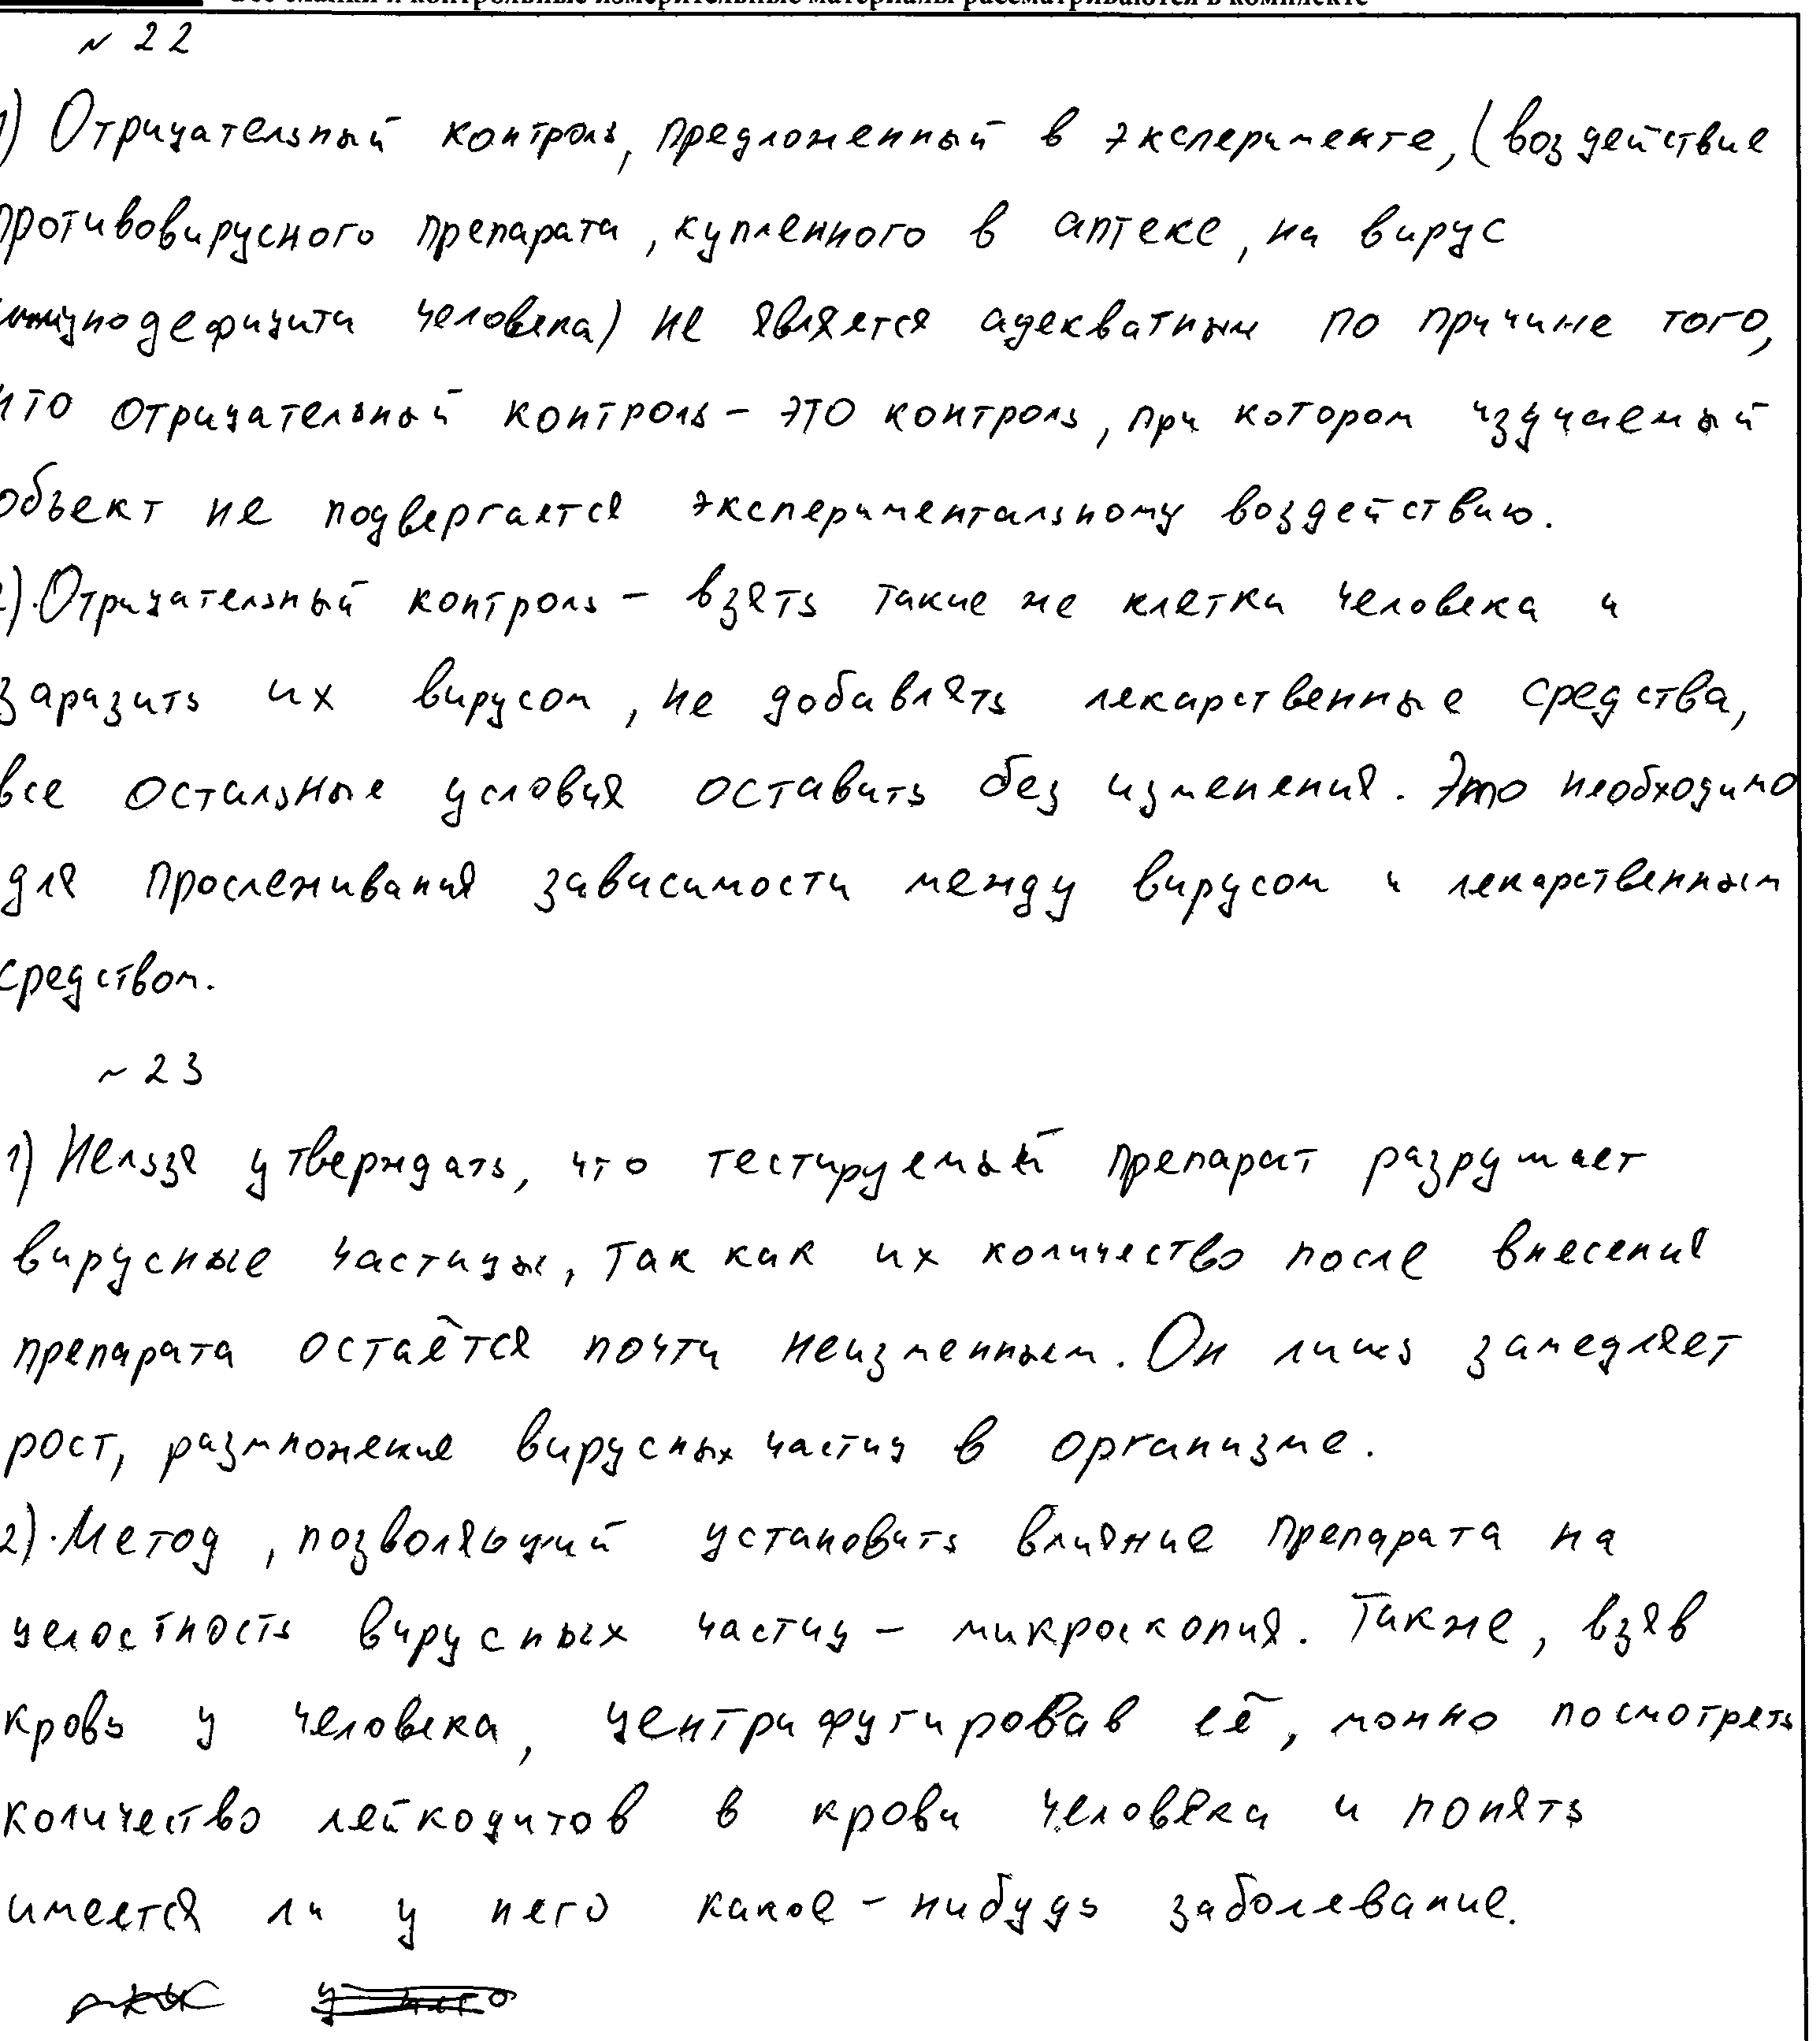 все бланки и контрольные измерительные материалы рассматриваются в комплекте
№ 22
1) Отрицательный контроль, предложенный в эксперименте, (воздействие
противовирусного препарата, купленного в аптеке, на вирус
иммунодефицита человека) не является адекватным по причине того,
что отрицательный контроль – это контроль, при котором изучаемый
объект не подвергается экспериментальному воздействию.
2). Отрицательный контроль – взять такие же клетки человека и
заразить их вирусом, не добавлять лекарственные средства,
все остальные условия оставить без изменения. Это необходимо
для прослеживания зависимости между вирусом и лекарственным
средством.
№ 23
1) Нельзя утверждать, что тестируемый препарат разрушает
вирусные частицы, так как их количество после внесения
препарата остаётся почти неизменным. Он лишь замедляет
рост, размножение вирусных частиц в организме.
2). Метод, позволяющий установить влияние препарата на
целостность вирусных частиц – микроскопия. Также, взяв
кровь у человека, центрифугировав её, можно посмотреть
количество лейкоцитов в крови человека и понять
имеется ли у него какое-нибудь заболевание.